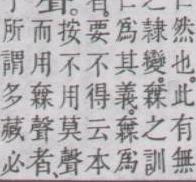 然也。此有無
隸變。橆之訓
爲其義。橆爲
要不得云本
按不用莫聲
而用橆聲者、
所謂多藏必